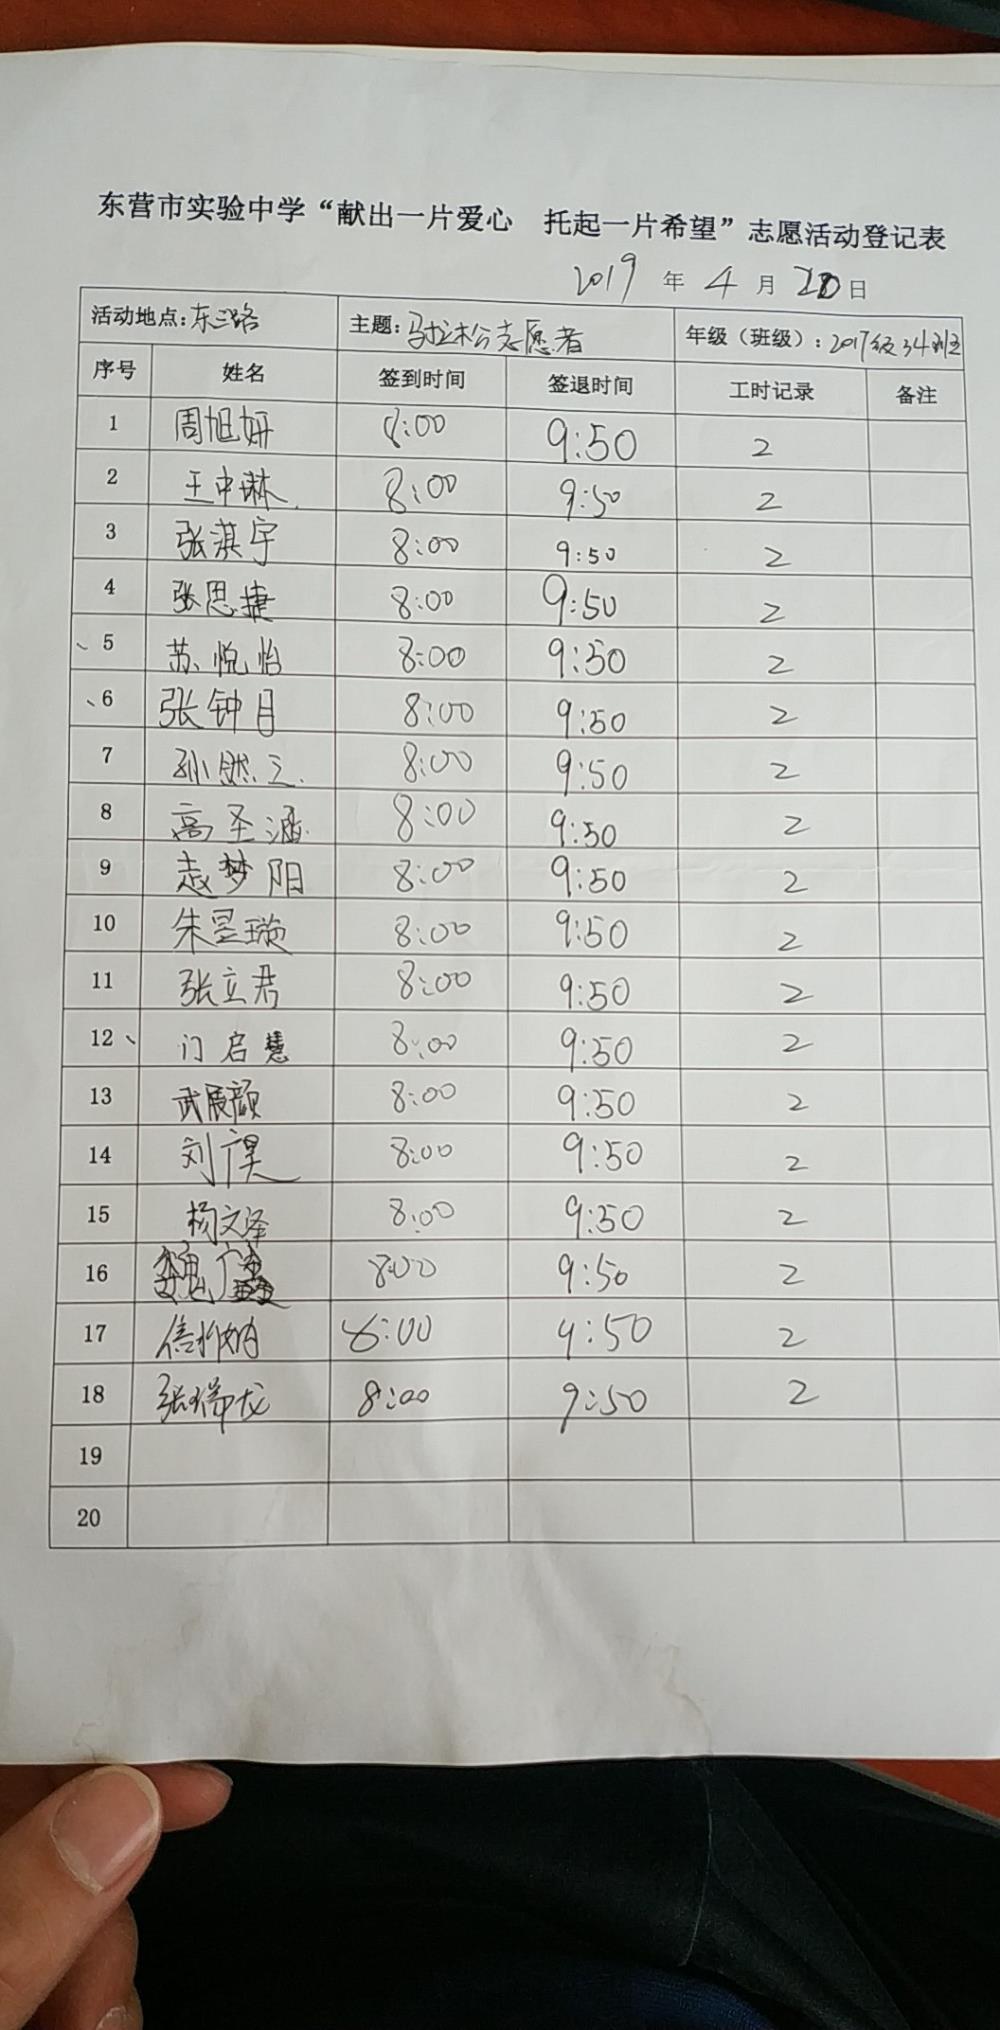 东营市实验中学“献出一片爱心 托起一片希望”志愿活动登记表
2019 年 4 月 20 日
活动地点:东三路 主题:马拉松志愿者 年级（班级）:2017级34班
序号 姓名 签到时间 签退时间 工时记录 备注
1 周旭妍 8:00 9:50 2
2 王中琳 8:00 9:50 2
3 张淇宇 8:00 9:50 2
4 张思捷 8:00 9:50 2
5 苏悦怡 8:00 9:50 2
6 张钟月 8:00 9:50 2
7 8:00 9:50 2
8 高圣涵 8:00 9:50 2
9 赵梦阳 8:00 9:50 2
10 朱昱璇 8:00 9:50 2
11 张立君 8:00 9:50 2
12 门启慧 8:00 9:50 2
13 武展颜 8:00 9:50 2
14 8:00 9:50 2
15 杨文泽 8:00 9:50 2
16 8:00 9:50 2
17 8:00 9:50 2
18 张瑞龙 8:00 9:50 2
19
20